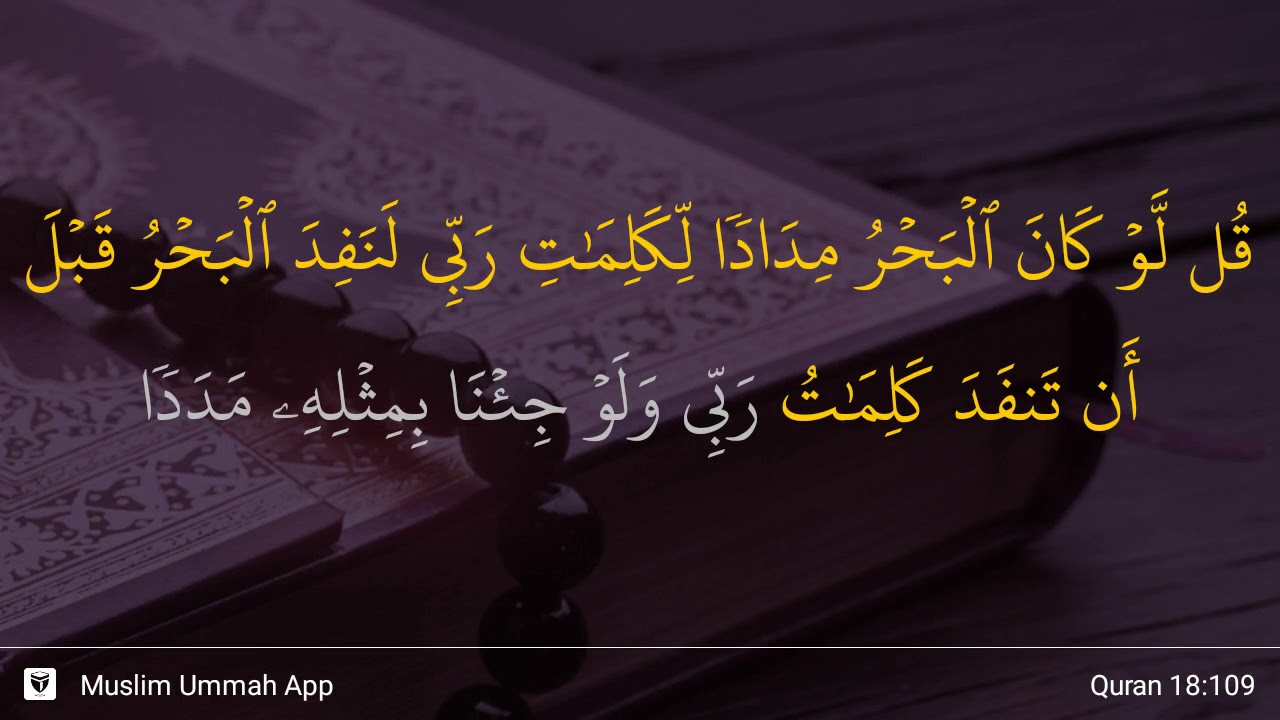 قُل لَّوۡ كَانَ ٱلۡبَحۡرُ مِدَادٗا لِّكَلِمَٰتِ رَبِّي لَنَفِدَ ٱلۡبَحۡرُ قَبۡلَ
أَن تَنفَدَ كَلِمَٰتُ رَبِّي وَلَوۡ جِئۡنَا بِمِثۡلِهِۦ مَدَدٗا
Muslim Ummah App
Quran 18:109